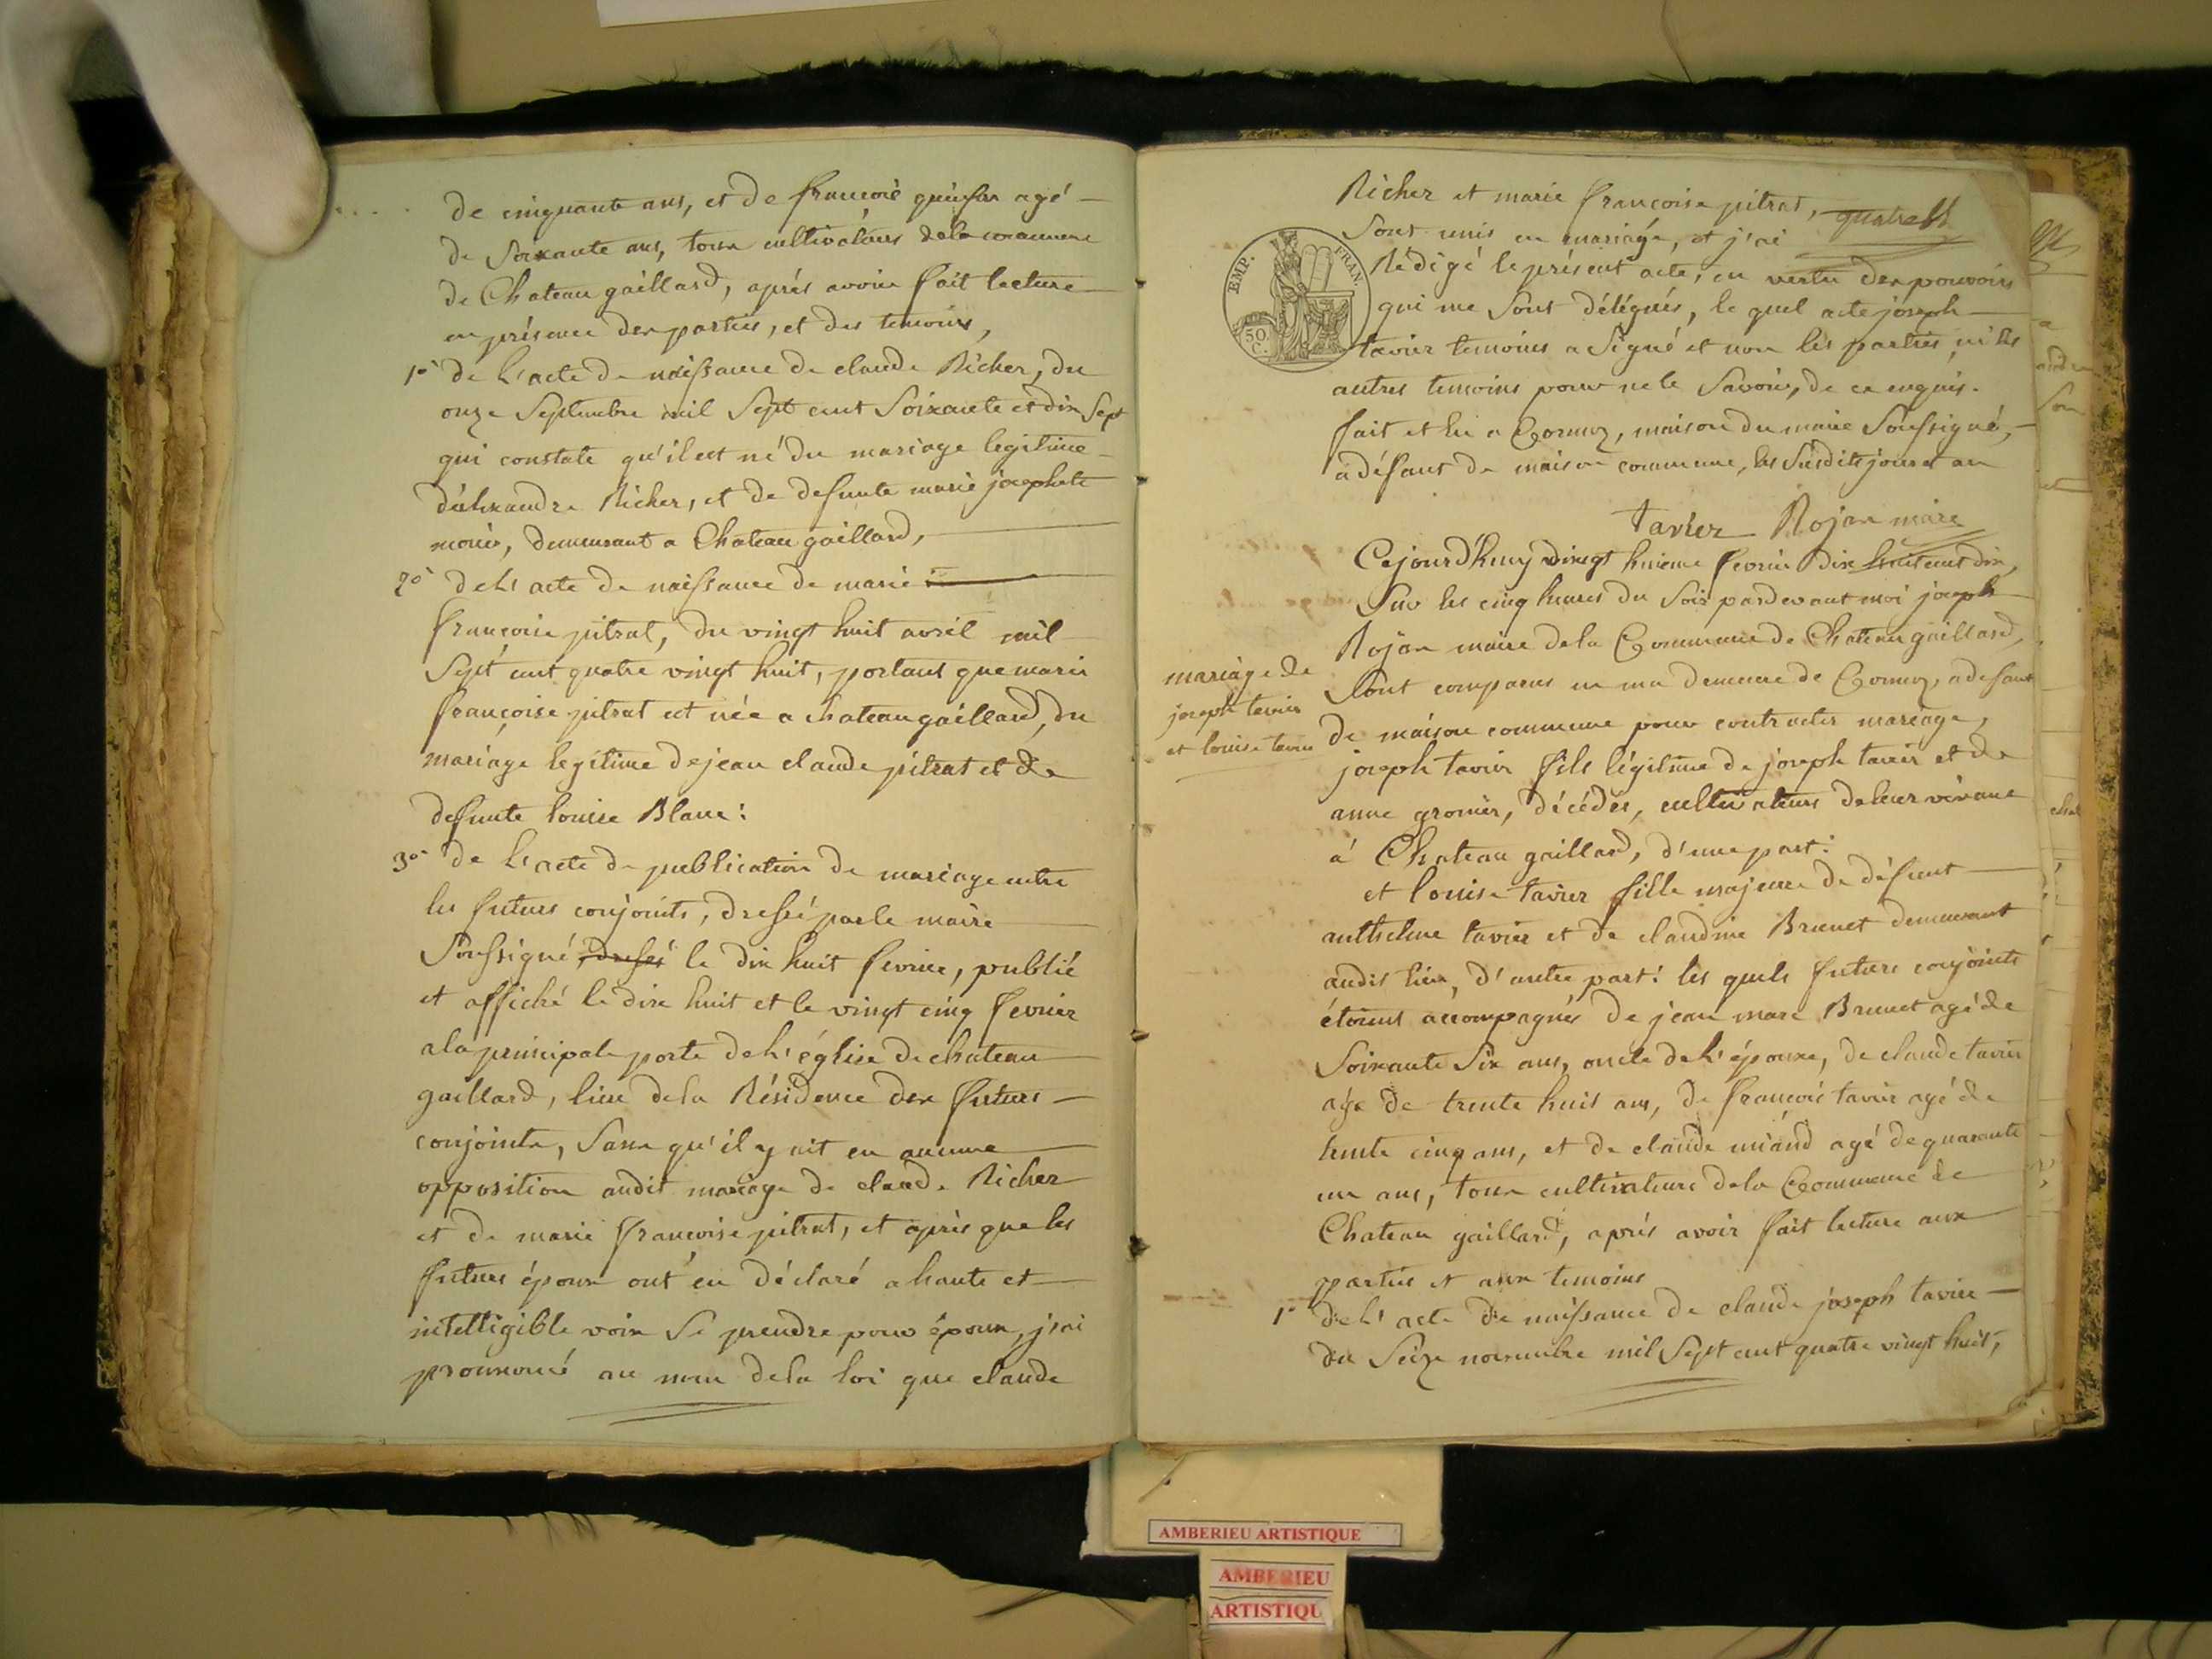 de cinquante ans, et de françois guichar agé
de Soixante ans, tous cultivateurs de la commune
de Chateau gaillard, aprés avoir fait lecture
en présence des parties, et des temoins,
1° de l'acte de naissance de claude Richer, du
onze Septembre mil Sept cent Soixante et dix Sept
qui constate qu'il est né du mariage legitime
d'alixandre Richer, et de defunte marie josephete
monier, demeurant a Chateau gaillard,
2° de l'acte de naissance de marie
françoise pitrat, du vingt huit avril mil
Sept cent quatre vingt huit, portant que marie
françoise pitrat est née a chateau gaillard, du
mariage legitime de jean claude pitrat et de
defunte louise Blanc:
3° de l'acte de publication de mariage entre
les futurs conjoints, dressé par le maire
Soussigné, dressé le dix huit fevrier, publié
et affiché le dix huit et le vingt cinq fevrier
a la principale porte de l'église de chateau
gaillard, lieu de la Résidence des futurs
conjoints, Sans qu'il y ait eu aucune
opposition audit mariage de claude Richer
et de marie françoise pitrat, et aprés que les
futurs époux ont eu déclaré a haute et
intelligible voix Se prendre pour époux, j'ai
prononcé au nom de la loi que claude
Richer et marie françoise pitrat,
Sont unis en mariage, et j'ai
EMP. FRAN.
50 C.
Rédigé le présent acte, en vertu des pouvoirs
qui me Sont délégués, le quel acte joseph
tavier temoins a Signé et non les parties ni les
autres temoins pour ne le Savoir, de ce enquis.
fait et lu a Cormoz, maison du maire Soussigné,
a défaut de maison commune, les Susdits jour et an
tavier Rojan maire
mariage de
joseph tavier
et louise tavier
Cejourd'huy vingt huieme fevrier dix huit cent dix,
Sur les cinq heures du Soir pardevant moi joseph
Rojan maire de la Commune de Chateau gaillard,
Sont comparus en ma demeure de Cormoz, a defaut
de maison commune pour contracter mariage,
joseph tavier fils légitime de joseph tavier et de
anne gronier, décédés, cultivateurs de leur vivant
á Chateau gaillard, d'une part:
et louise tavier fille majeure de défunt
anthelme tavier et de claudine Brunet demeurant
audit lieu, d'autre part: les quels futurs conjoints
étoient accompagnés de jean marc Brunet agé de
Soixante Six ans, oncle de l'épouse, de claude tavier
agé de trente huit ans, de françois tavier agé de
trente cinq ans, et de claude miand agé de quarante
un ans, tous cultivateurs de la Commune de
Chateau gaillard, aprés avoir fait lecture aux
parties et aux temoins
1° de l'acte de naissance de claude joseph tavier
du Seize novembre mil Sept cent quatre vingt huit,
AMBERIEU ARTISTIQUE
AMBERIEU
ARTISTIQU